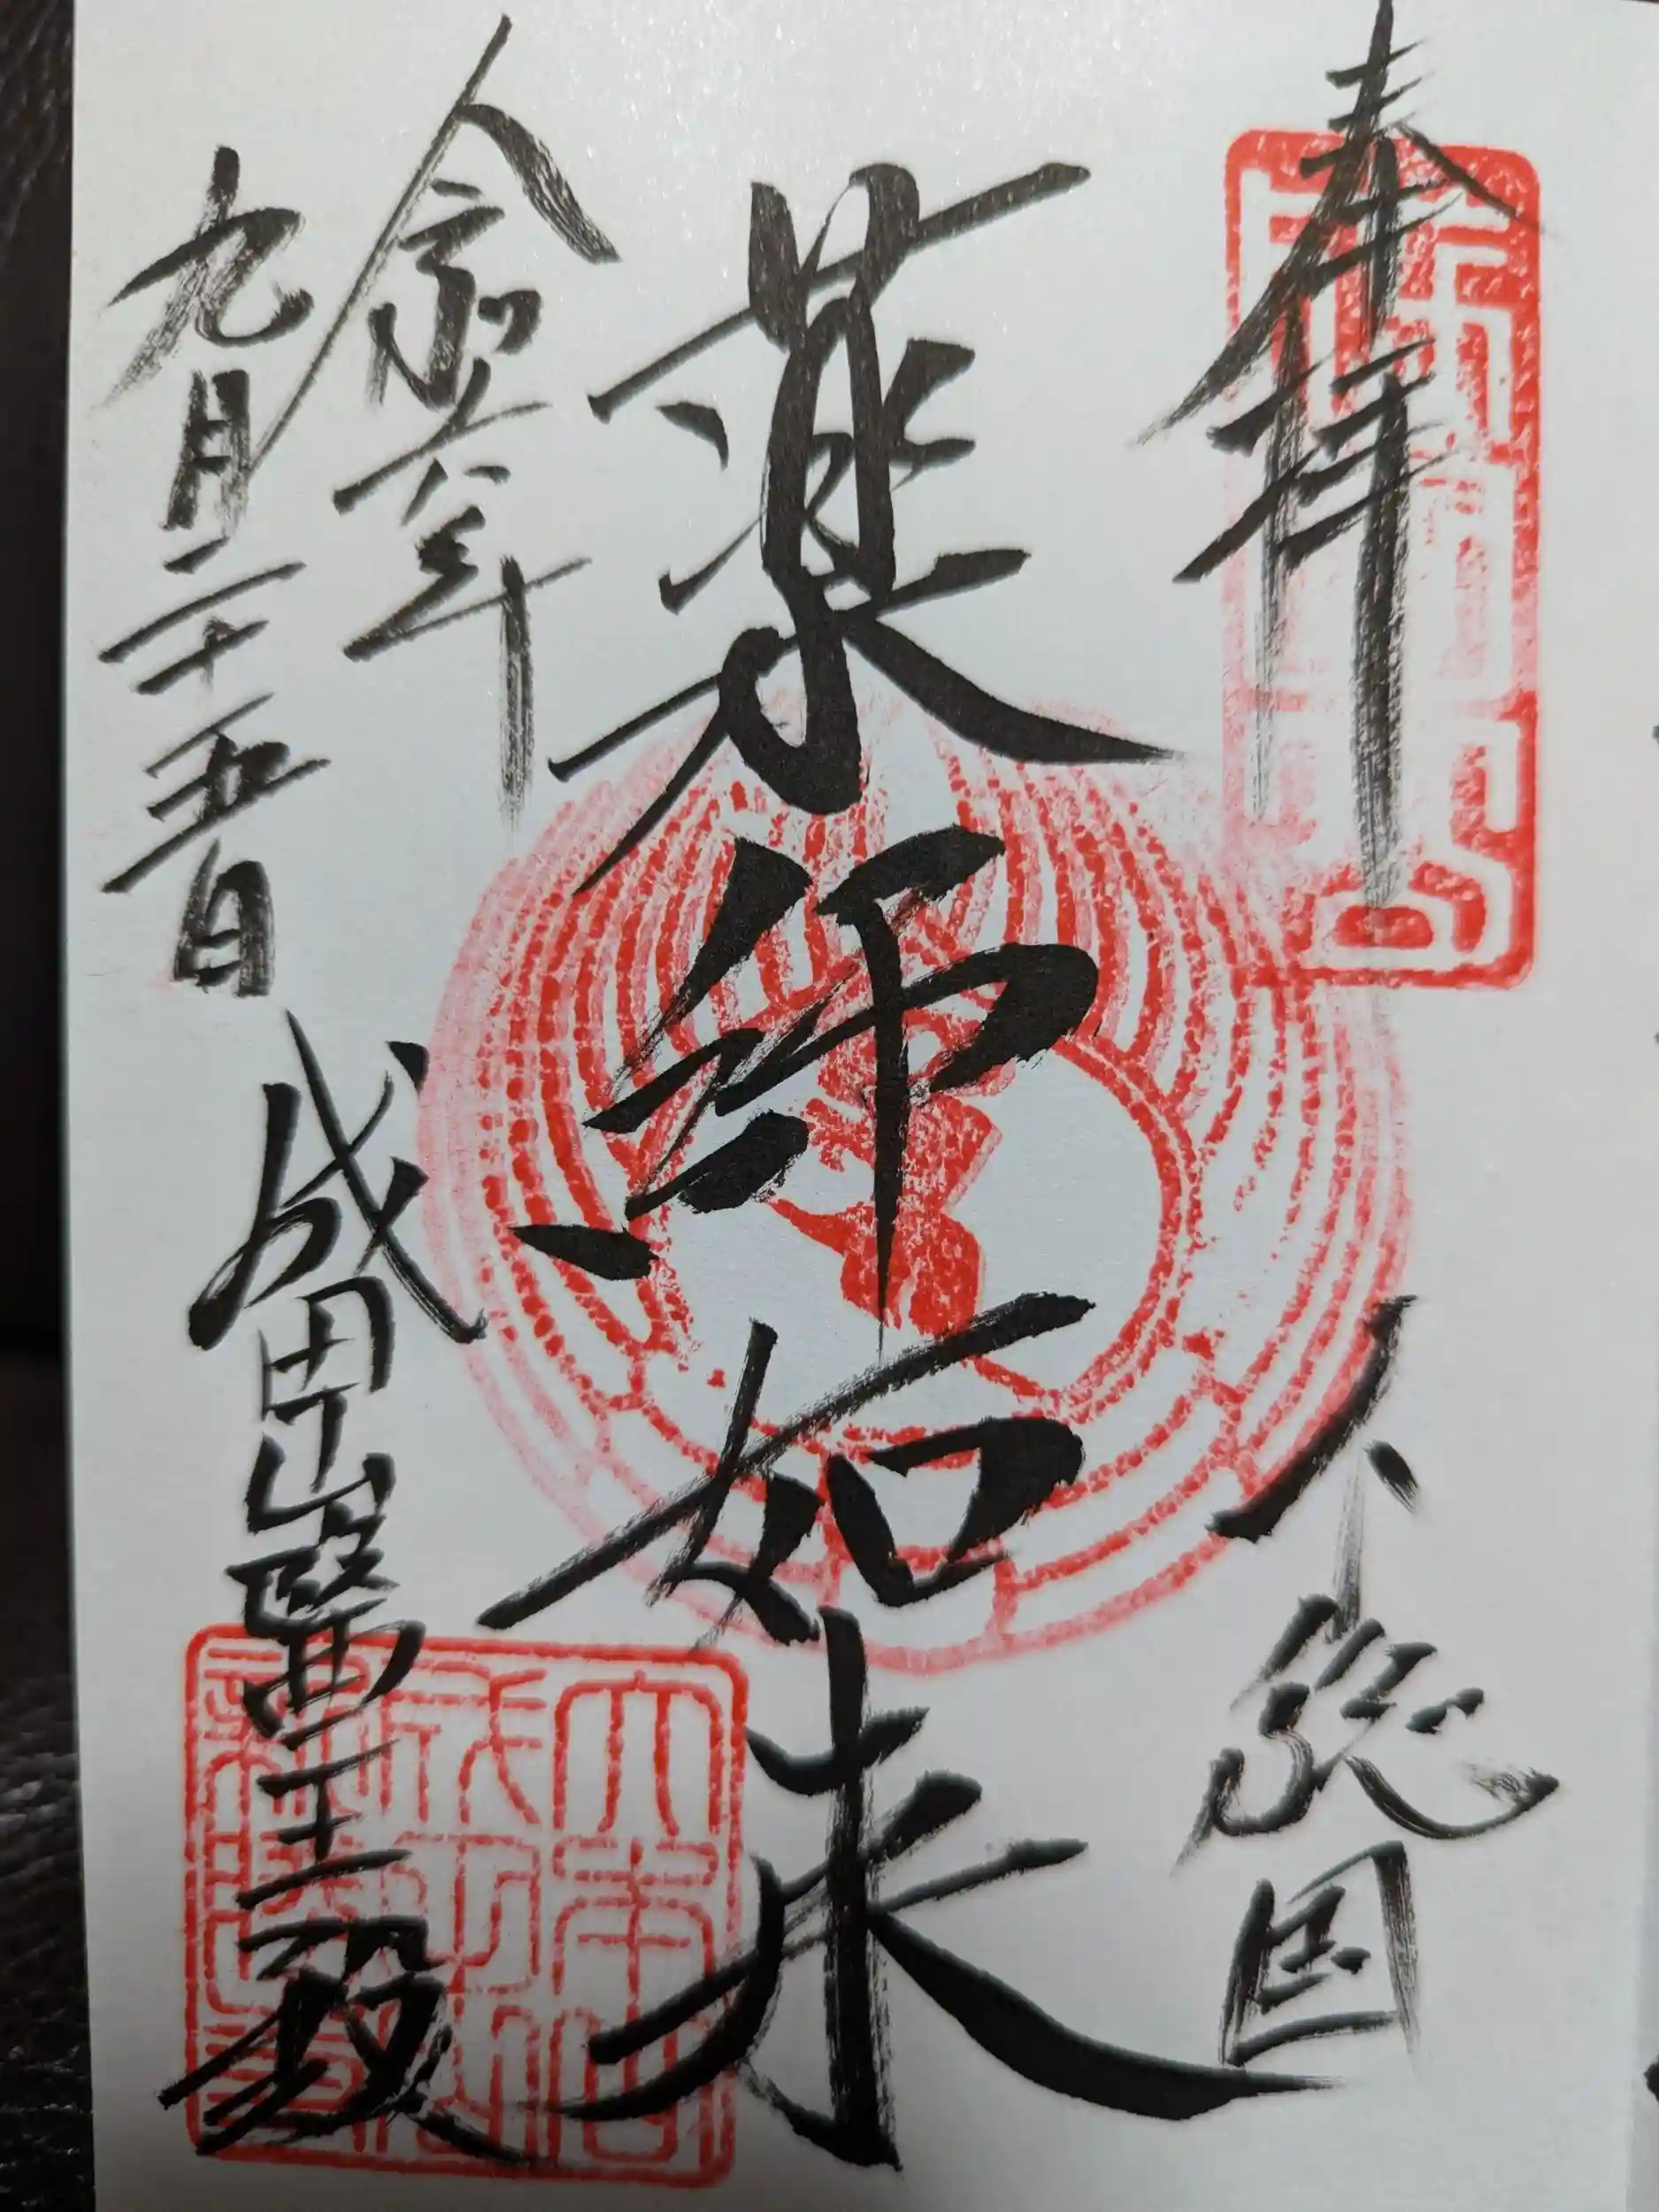 奉拝 下総国
薬師如来
令和六年
九月二十五日
成田山醫王殿